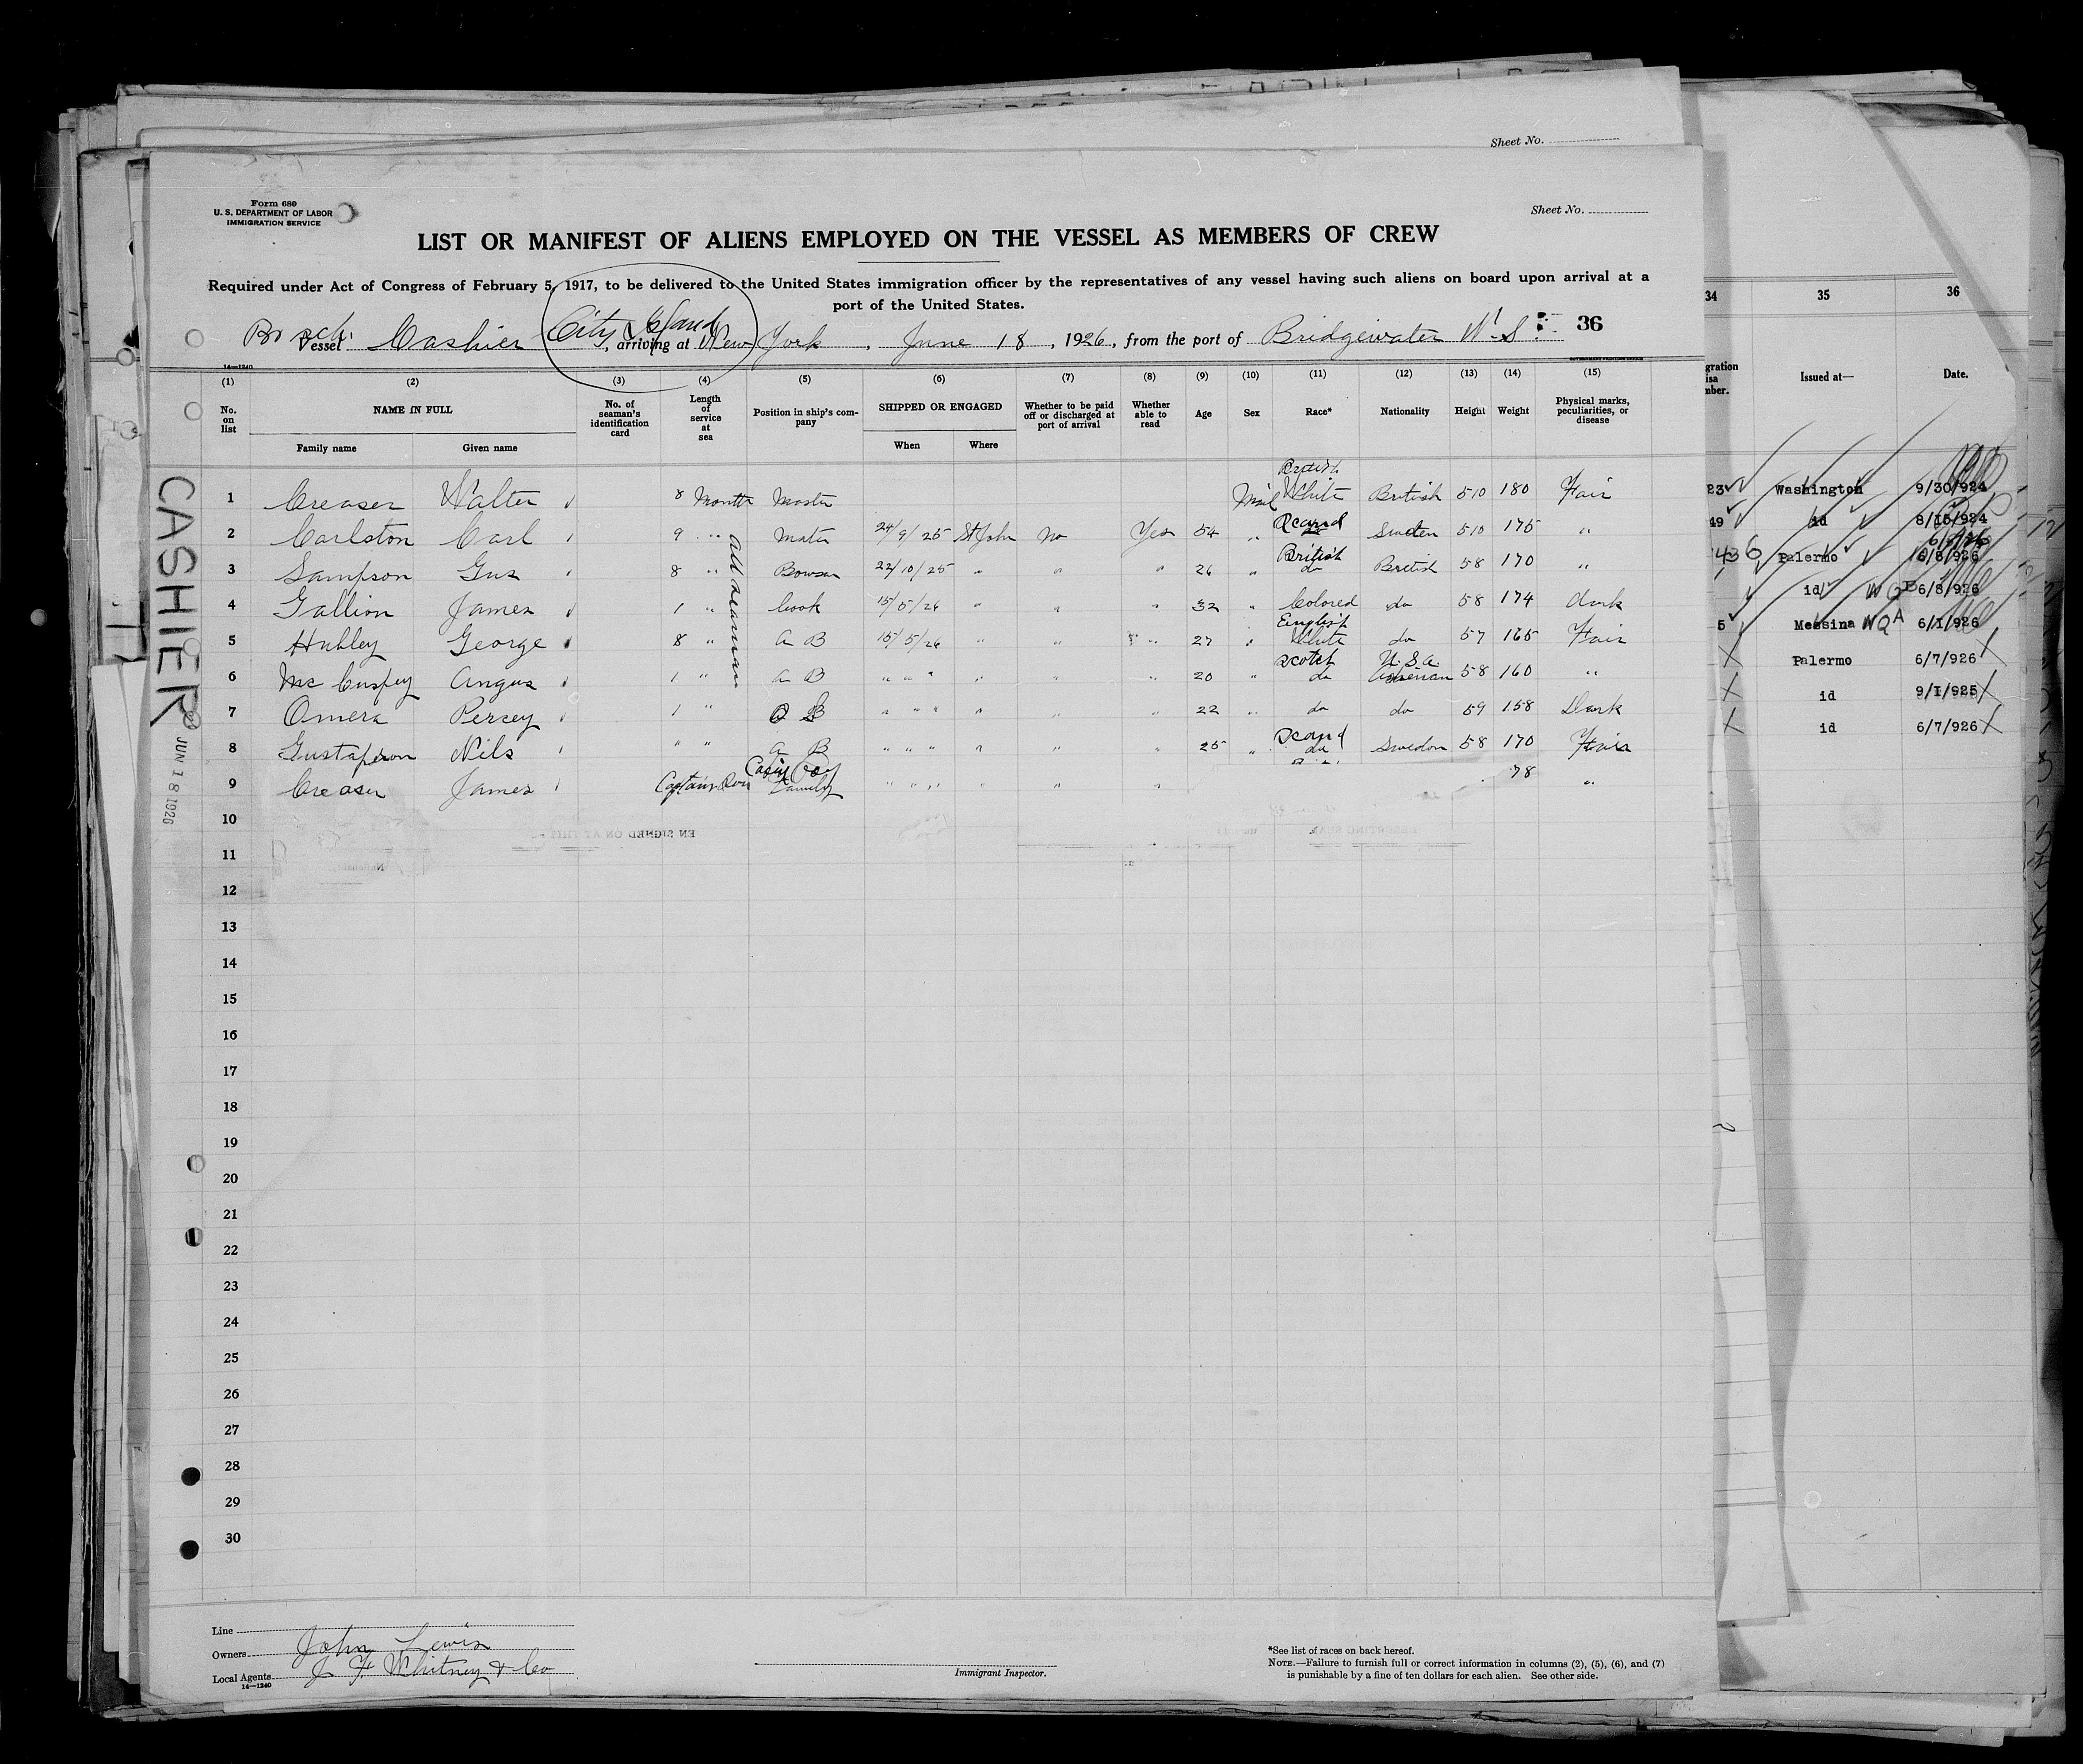 Sheet No.
Form 680
U. S. DEPARTMENT OF LABOR
IMMIGRATION SERVICE
Sheet No.
LIST OR MANIFEST OF ALIENS EMPLOYED ON THE VESSEL AS MEMBERS OF CREW
Required under Act of Congress of February 5, 1917, to be delivered to the United States immigration officer by the representatives of any vessel having such aliens on board upon arrival at a
port of the United States.
City Island
Br sch. Vessel Cashier, arriving at New York, June 18, 1926, from the port of Bridgewater N.S. 36
14—1240
(1) (2) (3) (4) (5) (6) (7) (8) (9) (10) (11) (12) (13) (14) (15)
No. on list NAME IN FULL No. of seaman's identification card Length of service at sea Position in ship's company SHIPPED OR ENGAGED Whether to be paid off or discharged at port of arrival Whether able to read Age Sex Race* Nationality Height Weight Physical marks, peculiarities, or disease
Family name Given name When Where
British
1 Creaser Walter 8 Month Master Male White British 510 180 Fair
2 Carlston Carl 9 " Mate 24/9/25 St John No Yes 54 " Scand Sweden 510 175 "
British
3 Sampson Gus 8 " Bowsan 22/10/25 " " " 26 " do British 58 170 "
4 Gallion James 1 " Cook 15/5/26 " " " 32 " Colored do 58 174 dark
English
5 Hubley George 8 " A B 15/5/26 " " " 27 " White do 57 165 Fair
Scotch U.S.A.
6 Angus 1 " A B " " " " " " 20 " do 58 160 "
7 Omera Percey 1 " " " " " " " 22 " do do 59 158 Dark
Scand
8 Gustafson Nils " " A B " " " " " " 25 " do Sweden 58 170 Fair
Cabin Boy
9 Creaser James Captain Son " " " " " " 78 "
all seaman
CASHIER
JUN 18 1926
10
11
12
13
14
15
16
17
18
19
20
21
22
23
24
25
26
27
28
29
30
Line
Owners John Lewis
Local Agents J F Whitney & Co
14—1240
Immigrant Inspector.
*See list of races on back hereof.
NOTE.—Failure to furnish full or correct information in columns (2), (5), (6), and (7)
is punishable by a fine of ten dollars for each alien. See other side.
34 35 36
Issued at— Date.
23 Washington 9/30/924
49 id 8/15/924
436 Palermo 6/8/926
id 6/8/926
5 Messina 6/1/926
Palermo 6/7/926
id 9/1/925
id 6/7/926